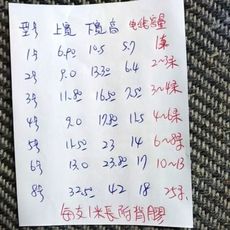 型号 上宽 下宽 高 电线容量
1号 6.90 10.5 5.7 1条
2号 9.0 13.30 6.4 2~3条
3号 11.80 16.50 7.50 3~4条
4号 9.0 17.80 11.5 4~6条
5号 11.50 23 14 6~8条
6号 13.0 23.80 17 10~13
8号 32.50 42 18 25条
每支1米长附背膠